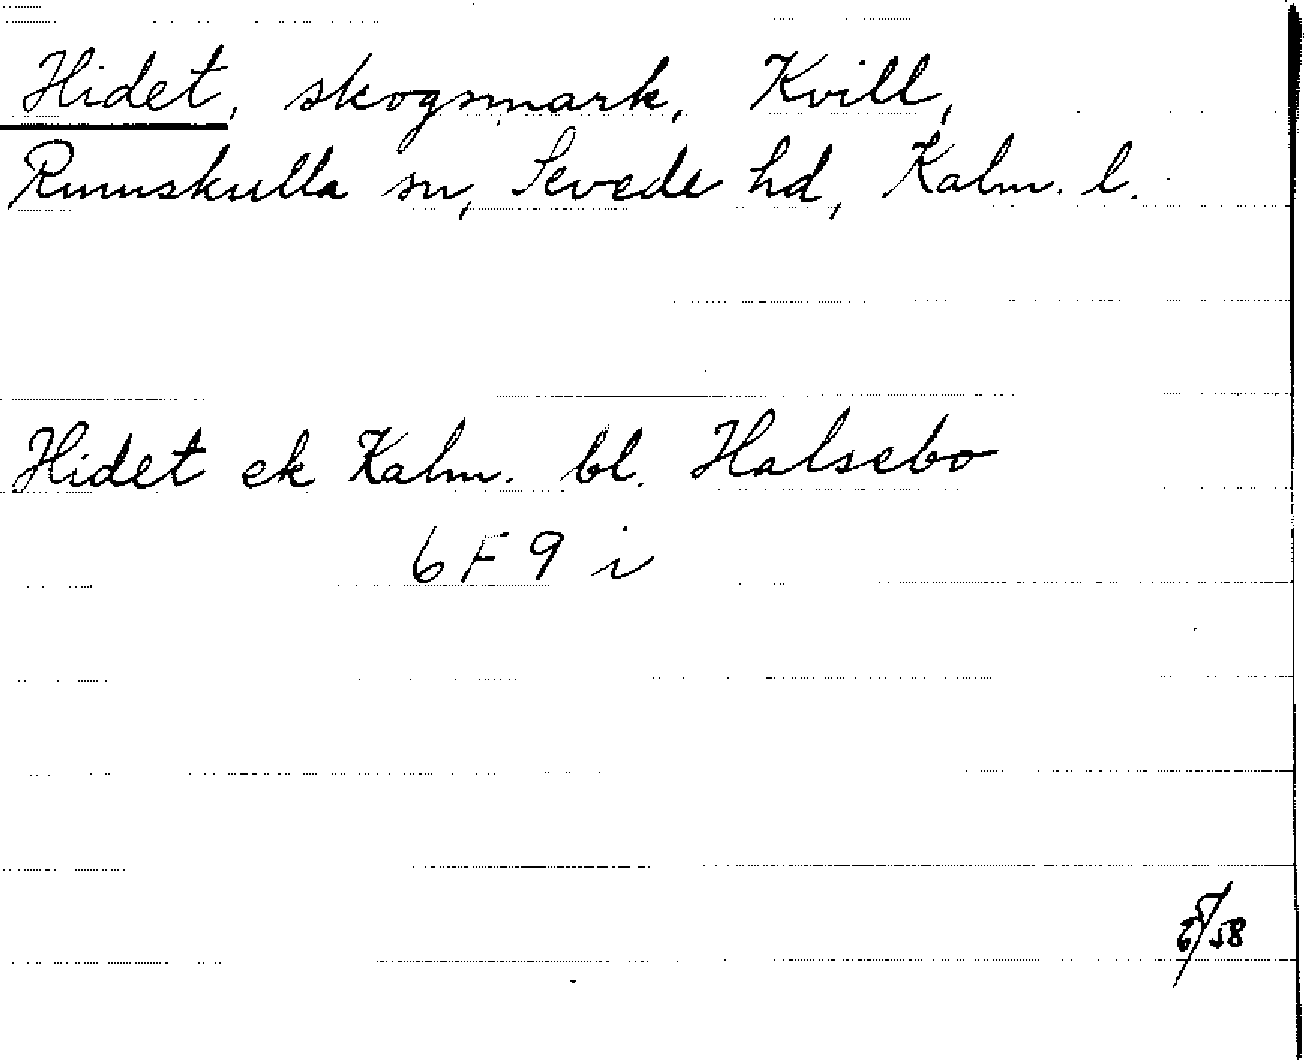 Hidet, skogsmark, Kvill,
Rumskulla sn, Sevede hd, Kalm. l.
Hidet ek Kalm. bl. Halsebo
6 F 9 i